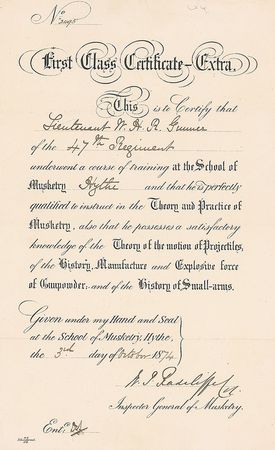 No
First Class Certificate - Extra.
This is to Certify that
Lieutenant W. H. R. Gunner
of the 47th Regiment
underwent a course of training at the School of
Musketry Hythe and that he is perfectly
qualified to instruct in the Theory and Practice of
Musketry, also that he possesses a satisfactory
knowledge of the Theory of the motion of Projectiles,
of the History, Manufacture and Explosive force
of Gunpowder; and of the History of Small-arms.
Given under my Hand and Seal
at the School of Musketry, Hythe,
the 3rd day of October 1874
W. J. Radcliffe Col.
Inspector General of Musketry.
Entd.